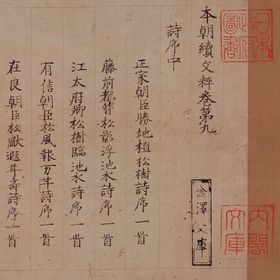 本朝續文粹卷第九
詩序中
正家朝臣勝地植松樹詩序一首
藤前都督松影浮池水詩序一首
江太府卿松樹臨池水詩序一首
有信朝臣松風報万年詩序一首
在良朝臣松獻遐年壽詩序一首
金澤文庫
内閣文庫